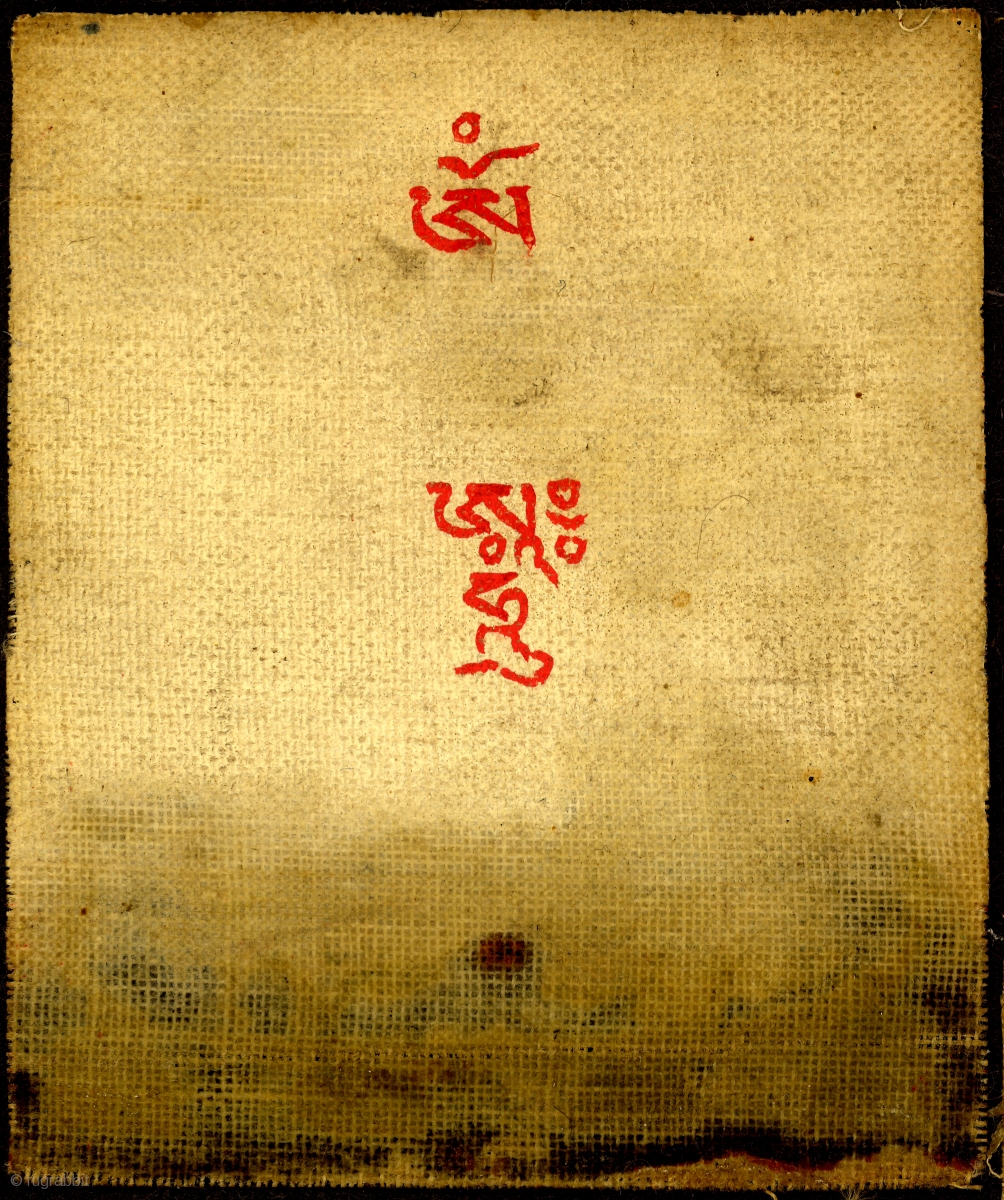 ཨོཾ
ཨཱཿ
ཧཱུཾ
© rugrabbit